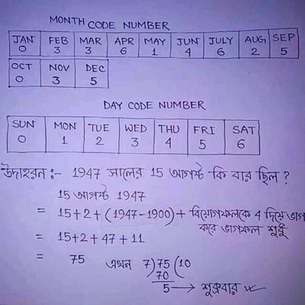 MONTH CODE NUMBER
JAN FEB MAR APR MAY JUN JULY AUG SEP
0 3 3 6 1 4 6 2 5
OCT NOV DEC
0 3 5
DAY CODE NUMBER
SUN MON TUE WED THU FRI SAT
0 1 2 3 4 5 6
উদাহরন:- 1947 সালের 15 আগস্ট কি বার ছিল ?
15 আগস্ট 1947
= 15+2+(1947-1900)+ বিয়োগফলকে 4 দিয়ে ভাগ
করে ভাগফল শুধু
= 15+2+47+11
= 75 এখন 7)75(10
70
5 → শুক্রবার